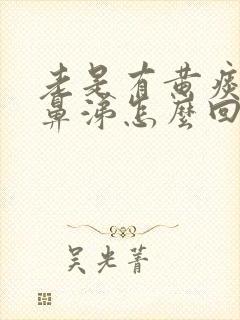 老是有黄痰
鼻涕怎麽回
吴光菁